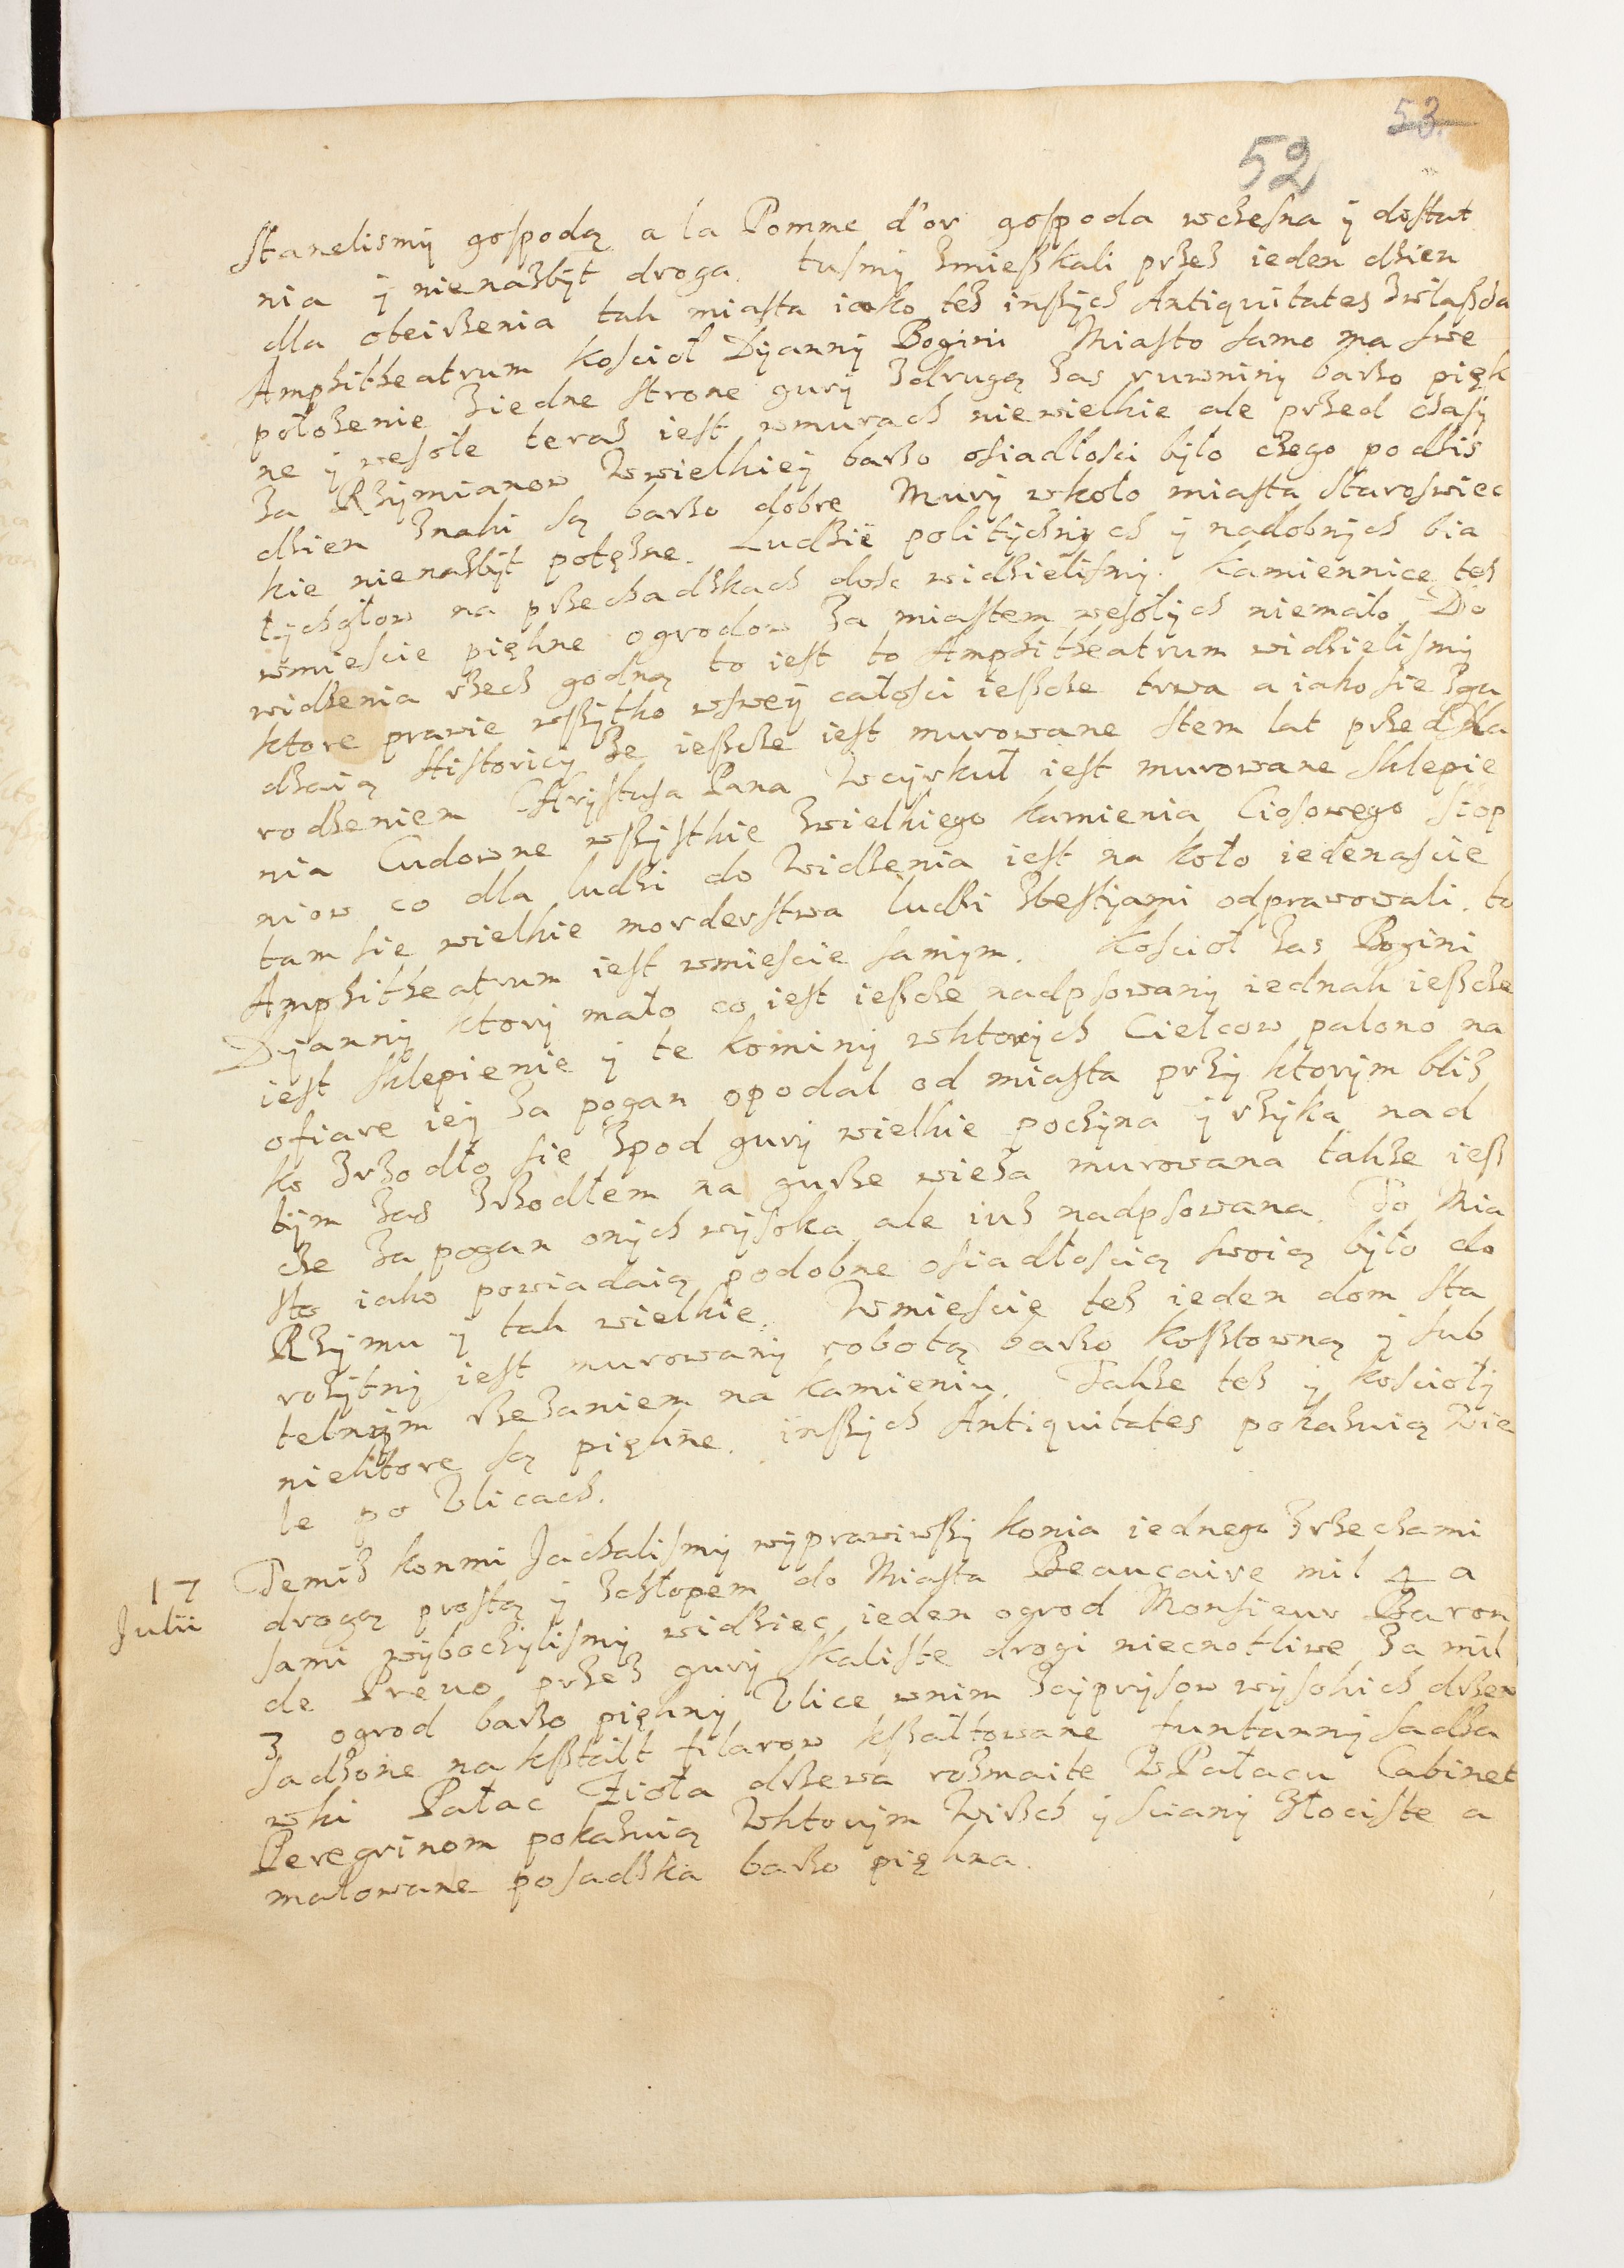 53.
52
stanelismy gospodą a la Pomme d'or gospoda wczesna y dostat
nia y nienazbyt droga. tusmy zmieszkali przez ieden dzien
dla obeirzenia tak miasta iako tez inszych Antiquitates zwlascza
Amphitheatrum kosciol Dyanny Bogini Miasto samo ma swe
położenie ziedne strone gury zdrugą zas ruwniny barzo pięk
ne y wesołe teraz iest wmurach niewielkie ale przed czasy
za Rzymianow Wwielkiey barzo osiadłosci było czego podzis
dzien znaki są barzo dobre Mury wkoło miasta staroswiec
kie nienazbyt potężne. Ludzie politycznych y nadobnych bia
łychgłow na przechadzkach dosc widzielismy. Kamiennice tez
wmiescie piękne ogrodow za miastem wesołych niemało Do
widzenia rzecz godną to iest to Amphitheatrum widzielismy
ktore prawie wszytko wswey całosci ieszcze trwa a iako sie zga
dzaią Historicy ze ieszcze iest murowane stem lat przed Na
rodzeniem Chrystusa Pana Wcyrkuł iest murowane sklepie
nia Cudowne wszystkie zwielkiego kamienia Ciosowego Stop
niow co dla ludzi do Widzenia iest na koło iedenascie
tam sie wielkie morderstwa ludzi zbestyami odprawowali. to
Amphitheatrum iest wmiescie samym. Kosciol zas Bogini
Dyanny ktory mało co iest ieszcze nadpsowany iednak ieszcze
iest sklepienie y te kominy wktorych Cielcow palono na
ofiare iey za pogan opodal od miasta przy ktorym bliz
ko zrzodło sie zpod gury wielkie poczyna y rzyka nad
tym zas zrzodłem na gurze wieża murowana takze iesz
cze za pogan onych wysoka ale iuz nadpsowana. To Mia
sto iako powiadaią podobne osiadłoscią swoią było do
Rzymu y tak wielkie. Wmiescie tez ieden dom sta
rożytny iest murowany robotą barzo kosztowną y sub
telnym rzezaniem na kamieniu. Takze tez y koscioły
niektore są piękne. inszych Antiquitates pokazuią Wie
le po Ulicach.
17
Julii
Temiz konmi Jachalismy wyprawiwszy konia iednego zrzeczami
drogą prostą y zchłopem do Miasta Beaucaire mil 4 a
sami zwyboczylismy widziec ieden ogrod Monsieur Baron
de Preuo przez gury skaliste drogi niecnotliwe za mil
3 ogrod barzo piękny Ulice wnim zcyprysow wysokich drzew
sadzone na kształt filarow kształtowane funtanny sadza
wki Pałac Zioła drzewa rozmaite WPałacu Cabinet
Peregrinom pokazuią Wktorym Wirzch y sciany złociste a
malowane posadzka barzo piękna.